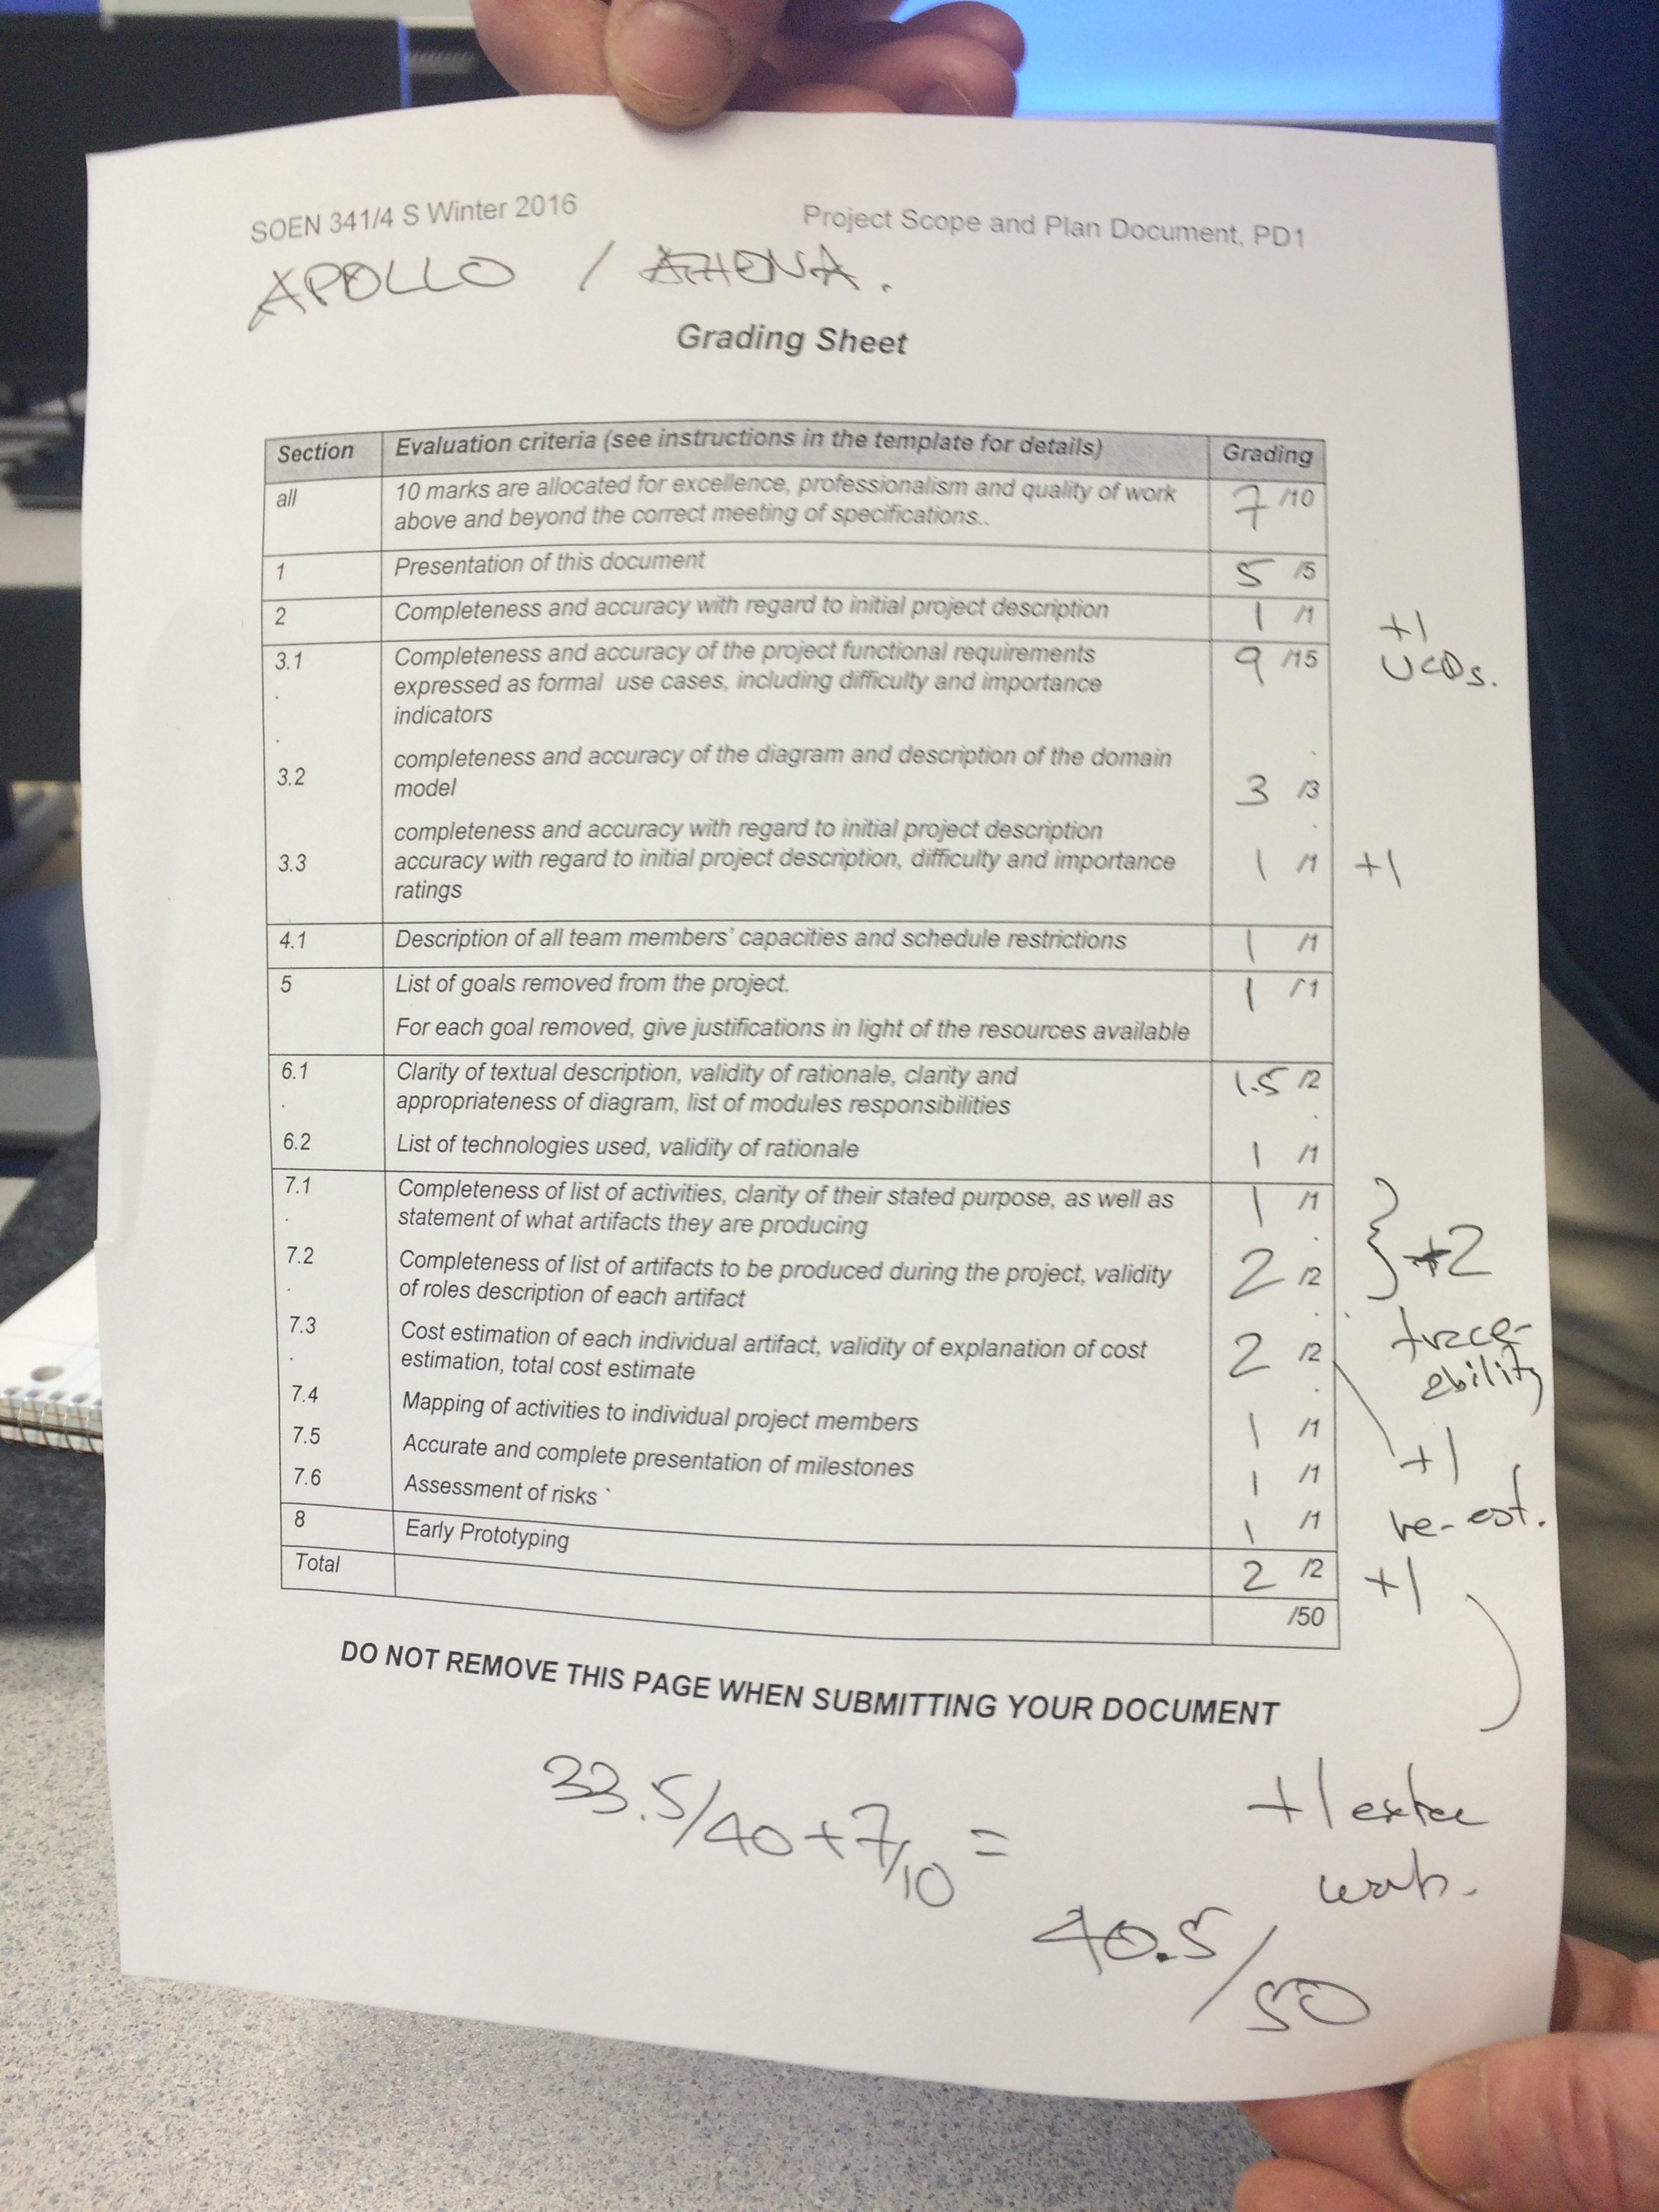 SOEN 341/4 S Winter 2016 Project Scope and Plan Document, PD1
APOLLO / ATHENA.
Grading Sheet
Section Evaluation criteria (see instructions in the template for details) Grading
all 10 marks are allocated for excellence, professionalism and quality of work 7 /10
above and beyond the correct meeting of specifications..
1 Presentation of this document 5 /5
2 Completeness and accuracy with regard to initial project description 1 /1
+1
UCDs.
3.1 Completeness and accuracy of the project functional requirements 9 /15
. expressed as formal use cases, including difficulty and importance
indicators
.
completeness and accuracy of the diagram and description of the domain
3.2 model 3 /3
completeness and accuracy with regard to initial project description
3.3 accuracy with regard to initial project description, difficulty and importance 1 /1 +1
ratings
4.1 Description of all team members' capacities and schedule restrictions 1 /1
5 List of goals removed from the project. 1 /1
For each goal removed, give justifications in light of the resources available
6.1 Clarity of textual description, validity of rationale, clarity and 1.5 /2
. appropriateness of diagram, list of modules responsibilities
6.2 List of technologies used, validity of rationale 1 /1
7.1 Completeness of list of activities, clarity of their stated purpose, as well as 1 /1
. statement of what artifacts they are producing
7.2 Completeness of list of artifacts to be produced during the project, validity 2 /2 } +2
. of roles description of each artifact
7.3 Cost estimation of each individual artifact, validity of explanation of cost 2 /2 trace-
. estimation, total cost estimate ability
7.4 Mapping of activities to individual project members 1 /1
7.5 Accurate and complete presentation of milestones 1 /1 +1
7.6 Assessment of risks 1 /1 re-est.
8 Early Prototyping
Total 2 /2 +1
/50
DO NOT REMOVE THIS PAGE WHEN SUBMITTING YOUR DOCUMENT
33.5/40 + 7/10 =
+1 extra
work.
40.5/50